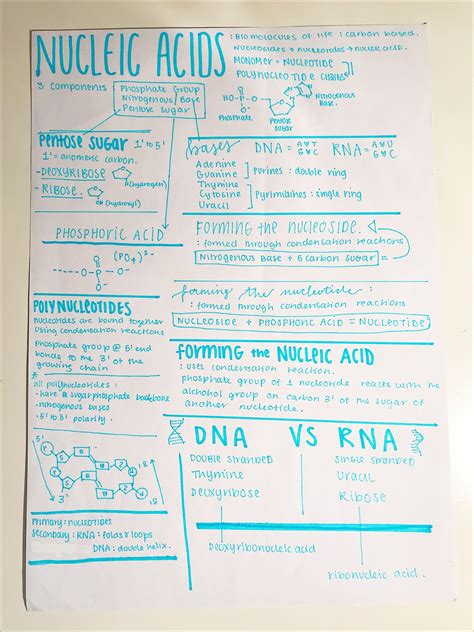 NUCLEIC ACIDS
: BIOMOLCULES OF LIFE : CARBON BASED.
NUCLEOSIDES → NUCLEOTIDES → NUCLEIC ACID.
MONOMER = NUCLEOTIDE
POLYNUCLEOTIDE CHAINS
3 COMPONENTS
Phosphate Group
Nitrogenous/Base
Pentose Sugar
HO-P-O
Phosphate
Pentose sugar
Nitrogenous Base.
PENTOSE SUGAR 1' to 5'
1' = anomeric carbon.
- DEOXYRIBOSE
(hydrogen)
- RIBOSE.
(hydroxyl)
bases
DNA = A☺T G☺C
RNA = A☺U G☺C
Adenine
Guanine
Purines : double ring
Thymine
Cytosine
Uracil
Pyrimidines : single ring
PHOSPHORIC ACID
(PO4)3-
O
O - P - O
O
FORMING THE NUCLEOSIDE.
: formed through condensation reactions
Nitrogenous Base + 5 carbon sugar =
forming the nucleotide
: formed through condensation reactions
NUCLEOSIDE + PHOSPHORIC ACID = NUCLEOTIDE
POLYNUCLEOTIDES
nucleotides are bound together
using condensation reactions
Phosphate group @ 5' end
bonds to the 3' of the
growing chain
all polynucleotides :
• have a sugarphosphate backbone
• nitrogenous bases
• 5' to 3' polarity.
FORMING the NUCLEIC ACID
: uses condensation reaction.
phosphate group of 1 nucleotide reacts with the
alchohol group on carbon 3' of the sugar of
another nucleotide.
5'
3'
3'
5'
DNA VS RNA
Double stranded
Thymine
Deoxyribose
Single stranded
Uracil
Ribose
Deoxyribonucleic acid
ribonucleic acid.
Primary : nucleotides
Secondary : RNA : folds & loops
DNA : double helix.